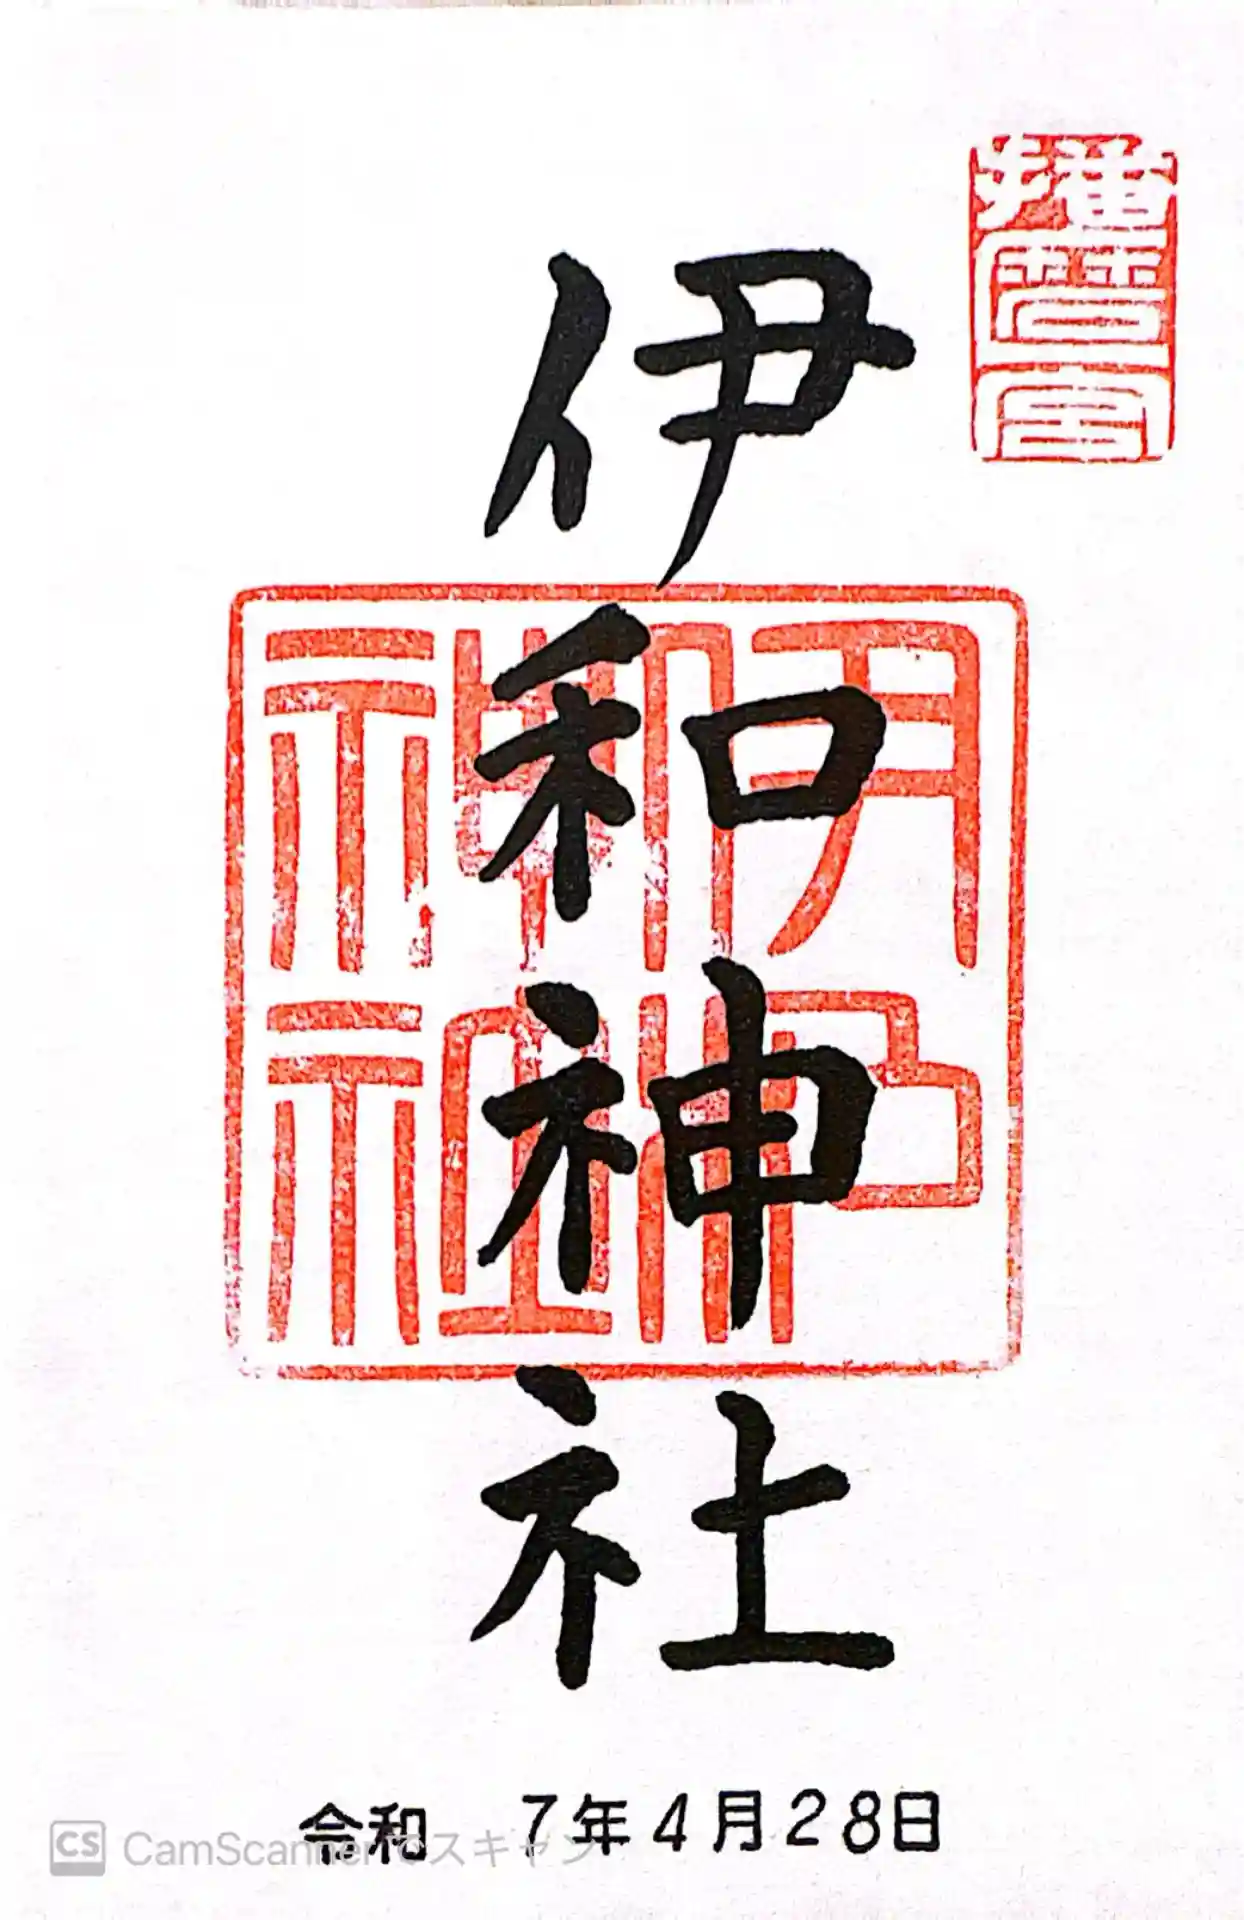 播磨一宮
伊和神社
伊和
神社
令和 7年4月28日
CS CamScannerでスキャン